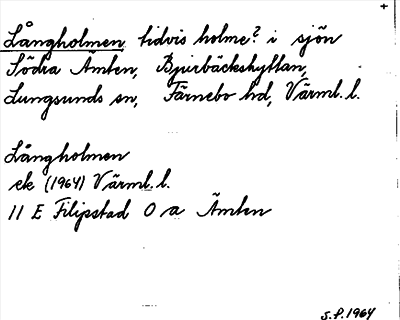 +
Långholmen, tidvis holme? i sjön
Södra Ämten, Bjurbäckshyttan,
Lungsunds sn, Färnebo hd, Värml. l.
Långholmen
ek (1964) Värml. l.
11 E Filipstad 0 a Ämten
S.P. 1964